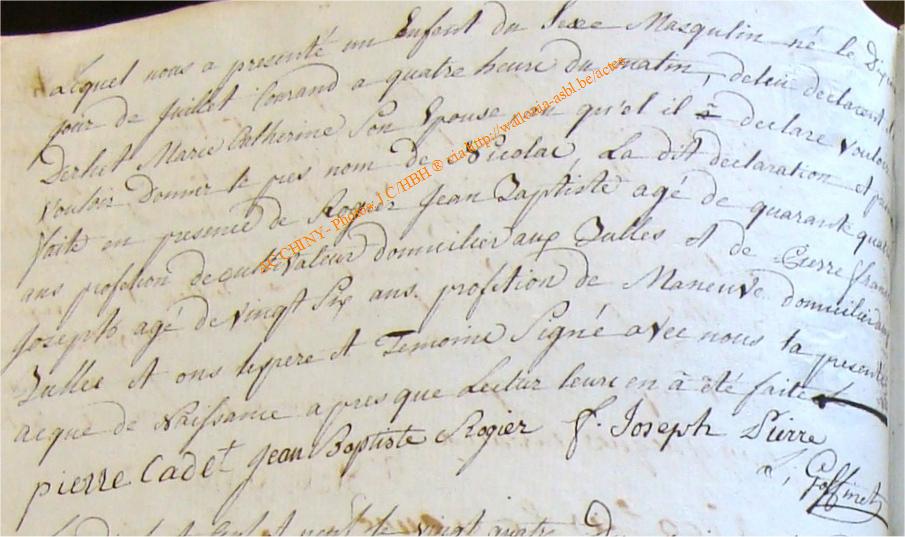 lequel nous a presenté un Enfent du Sexe Masqulin né le Dix
jour de juillet Courand a quatre heure du matin, deluu declacent
Derhet Marie Catherine Son Epouse en qu'el il à declaré vouloir
vouloir donner le pres nom de Nicolas, La dit declaration et
faite en presence de Rogier Jean Baptiste agé de quarante quatre
ans profetion de cultivateur domicilier aux Bulles et de Pierre fran
Joseph agé de vingt Six ans profetion de Maneuve domicilier
Bulles et ons lepere et Temoine Signé avec nous la presente
acque de Naissance apres que Lectur leure en à été faite
pierre Cadet Jean Baptiste Rogier f. Joseph Pierre
Goffinet
vingt quatre Du
ACCHINY - Photos J C/HBH ® via http://wallonia-asbl.be/actes